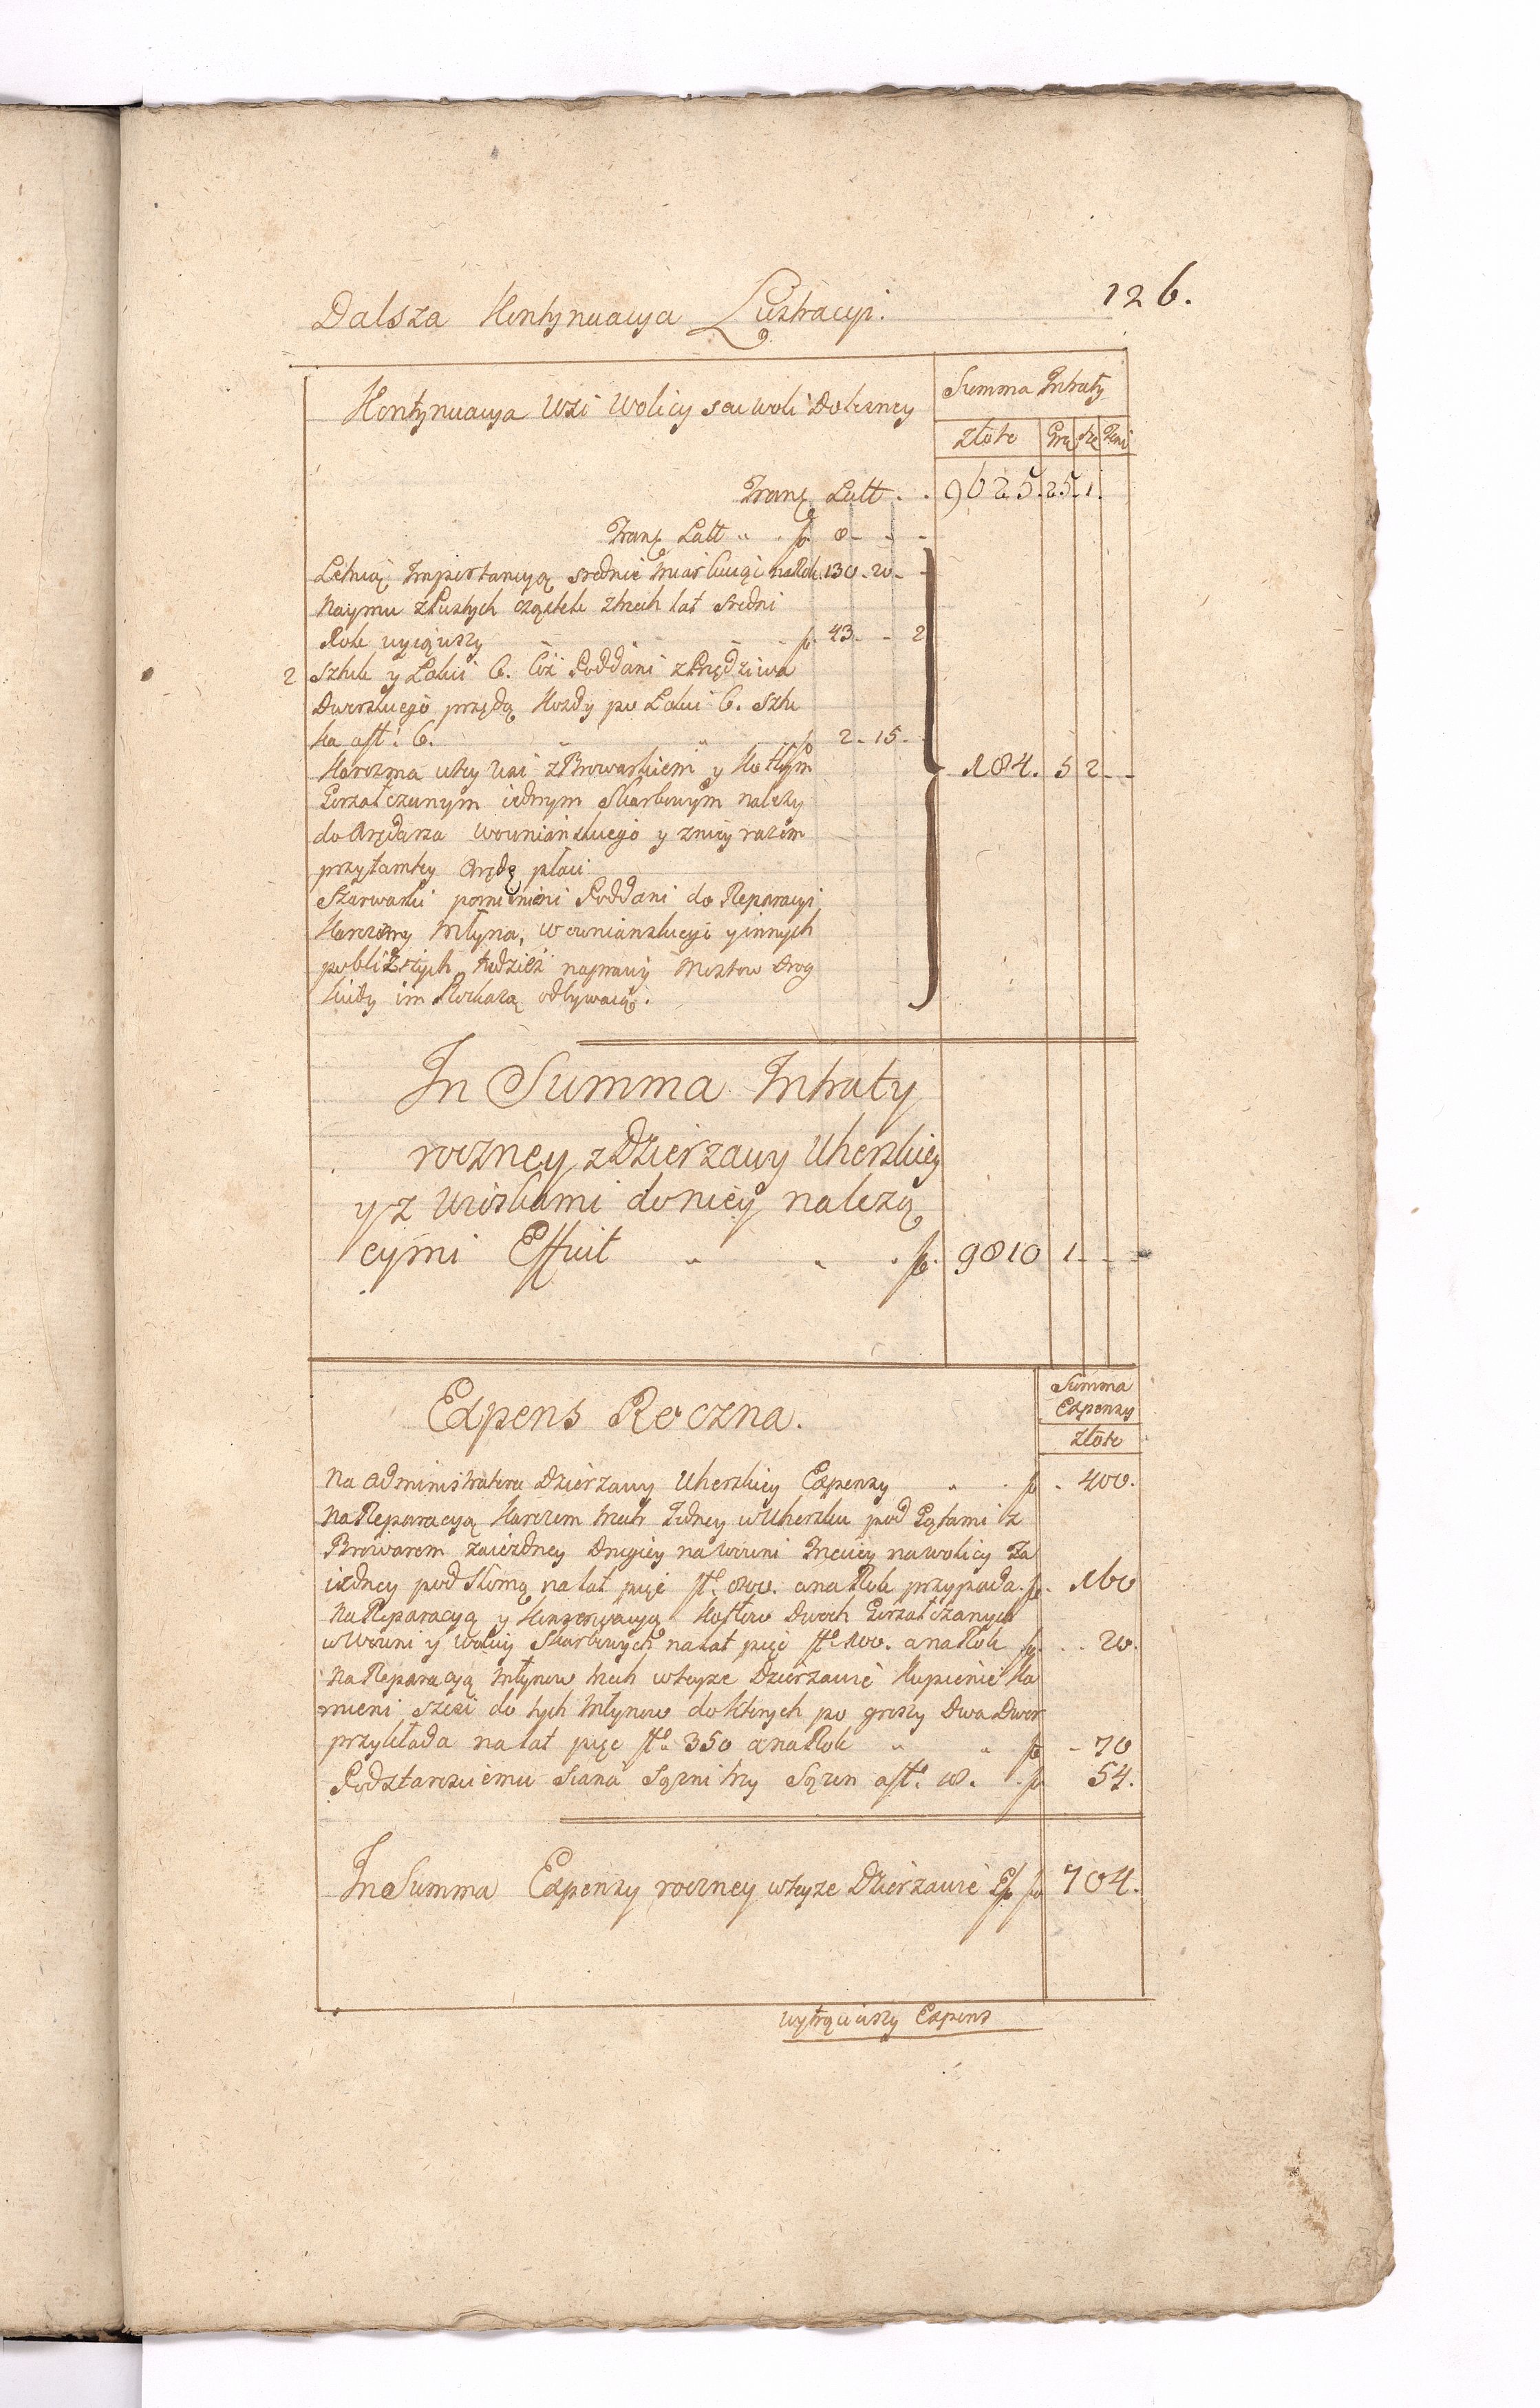 126.
Dalsza Kontynuacya Lustracyi.
Kontynuacya Wsi Wolicy seu Woli Dolezney
Summa Intraty
Złote Gro Sze Peni
Transp Latt . . 9625. 25. 1.
Transp Latt „ . fp 8 - - -
Letnią Importancyą srednie miarkuiąc na Rok 130 - 20 -
Naymu z Pustych cząstek z trzech lat sredni
Rok wyiąwszy fp. 43. - 2
2 Sztuk y Łokci 6. Ciż Poddani z Przędziwa
Dworskiego przędą Kozdy po Łokci 6. Sztu
ka a fl: 6. „ „ fp 2 - 15 -
Karczma w tey Wsi z Browarkiem y Kotłem 184. 5 2 - -
Gorzałczanym iednym Skarbowym należy
do Arędarza Wowniańskiego y z niey razem
przy tamtey Arędę płaci
Szarwarki pomienieni Poddani do Reparacyi
Karczmy Młyna, Wowniańskiego y innych
pobliższych tudziesz naprawy Mostow Drog
kiedy im Rozkażą odbywaią.
In Summa Intraty
roczney z Dzierzawy Uherskiey
y z Wioskami do niey należą
cymi Effuit „ „ . fp. 9810 1 - - -
Expens Roczna.
Summa
Expensy
Złote
Na Administratora Dzierzawy Uherskiey Expensy „ . fp . 400.
Na Reparacyą Karczem trzech Jedney w Uhersku pod Gątami z
Browarem zaiezdney Drugiey na Wowni Trzeciey na Wolicy Za
iezdney pod Słomą na lat pięć fl: 800. a na Rok przypada. fp. 160
Na Reparacyą y Konserwacyą Kotłow Dwoch Gorzałczanych
w Wowni y Wolicy Skarbowych na lat pięć fl: 100. a na Rok fp. . . 20.
Na Reparacyą Młynow trzech w teyze Dzierzawie Kupienie Ka
mieni Sześć do tych Młynow do ktorych po groszy Dwa Dwor
przykłada na lat pięć fl: 350 a na Rok „ „ fp - 70
Podstarosciemu Siana Sązni trzy Sązen a fl: 18. . fp 54.
In Summa Expensy roczney w teyze Dzierzawie Eff fp 704.
Wytrąciwszy Expens